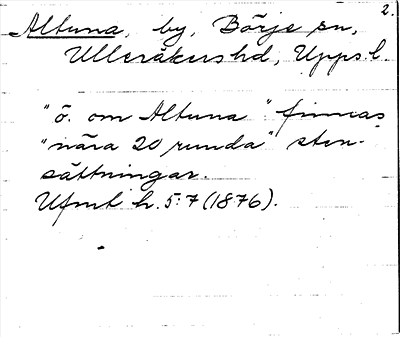 2.
Altuna, by, Börje sn,
Ulleråkers hd, Upps. l.
"ö. om Altuna" finnas
"nära 20 runda" sten-
sättningar.
Ufmt h. 5:7 (1876).